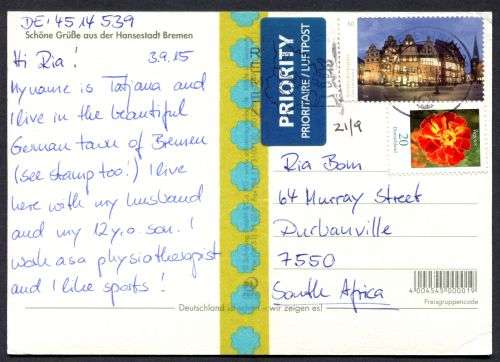 DE: 4514539
Schöne Grüße aus der Hansestadt Bremen
Hi Ria! 3.9.15
My name is Tatjana and
I live in the beautiful
German town of Bremen
(see stamp too!) I live
here with my husband
and my 12 y.o son. I
work as a physiotherapist
and I like sports!
Deutschland ist schön – wir zeigen es!
PRIORITY
PRIORITAIRE / LUFTPOST
21/9
20
Ria Bom
64 Murray Street
Durbanville
7550
South Africa
4 004545 000019
Preisgruppencode